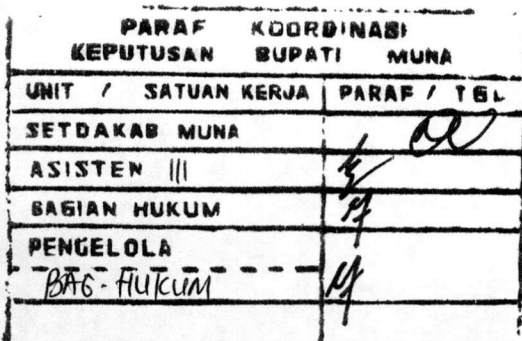 PARAF KOORDINASI
KEPUTUSAN BUPATI MUNA
UNIT / SATUAN KERJA PARAF / TGL
SETDAKAB MUNA
ASISTEN III
BAGIAN HUKUM
PENGELOLA
BAG - HUKUM